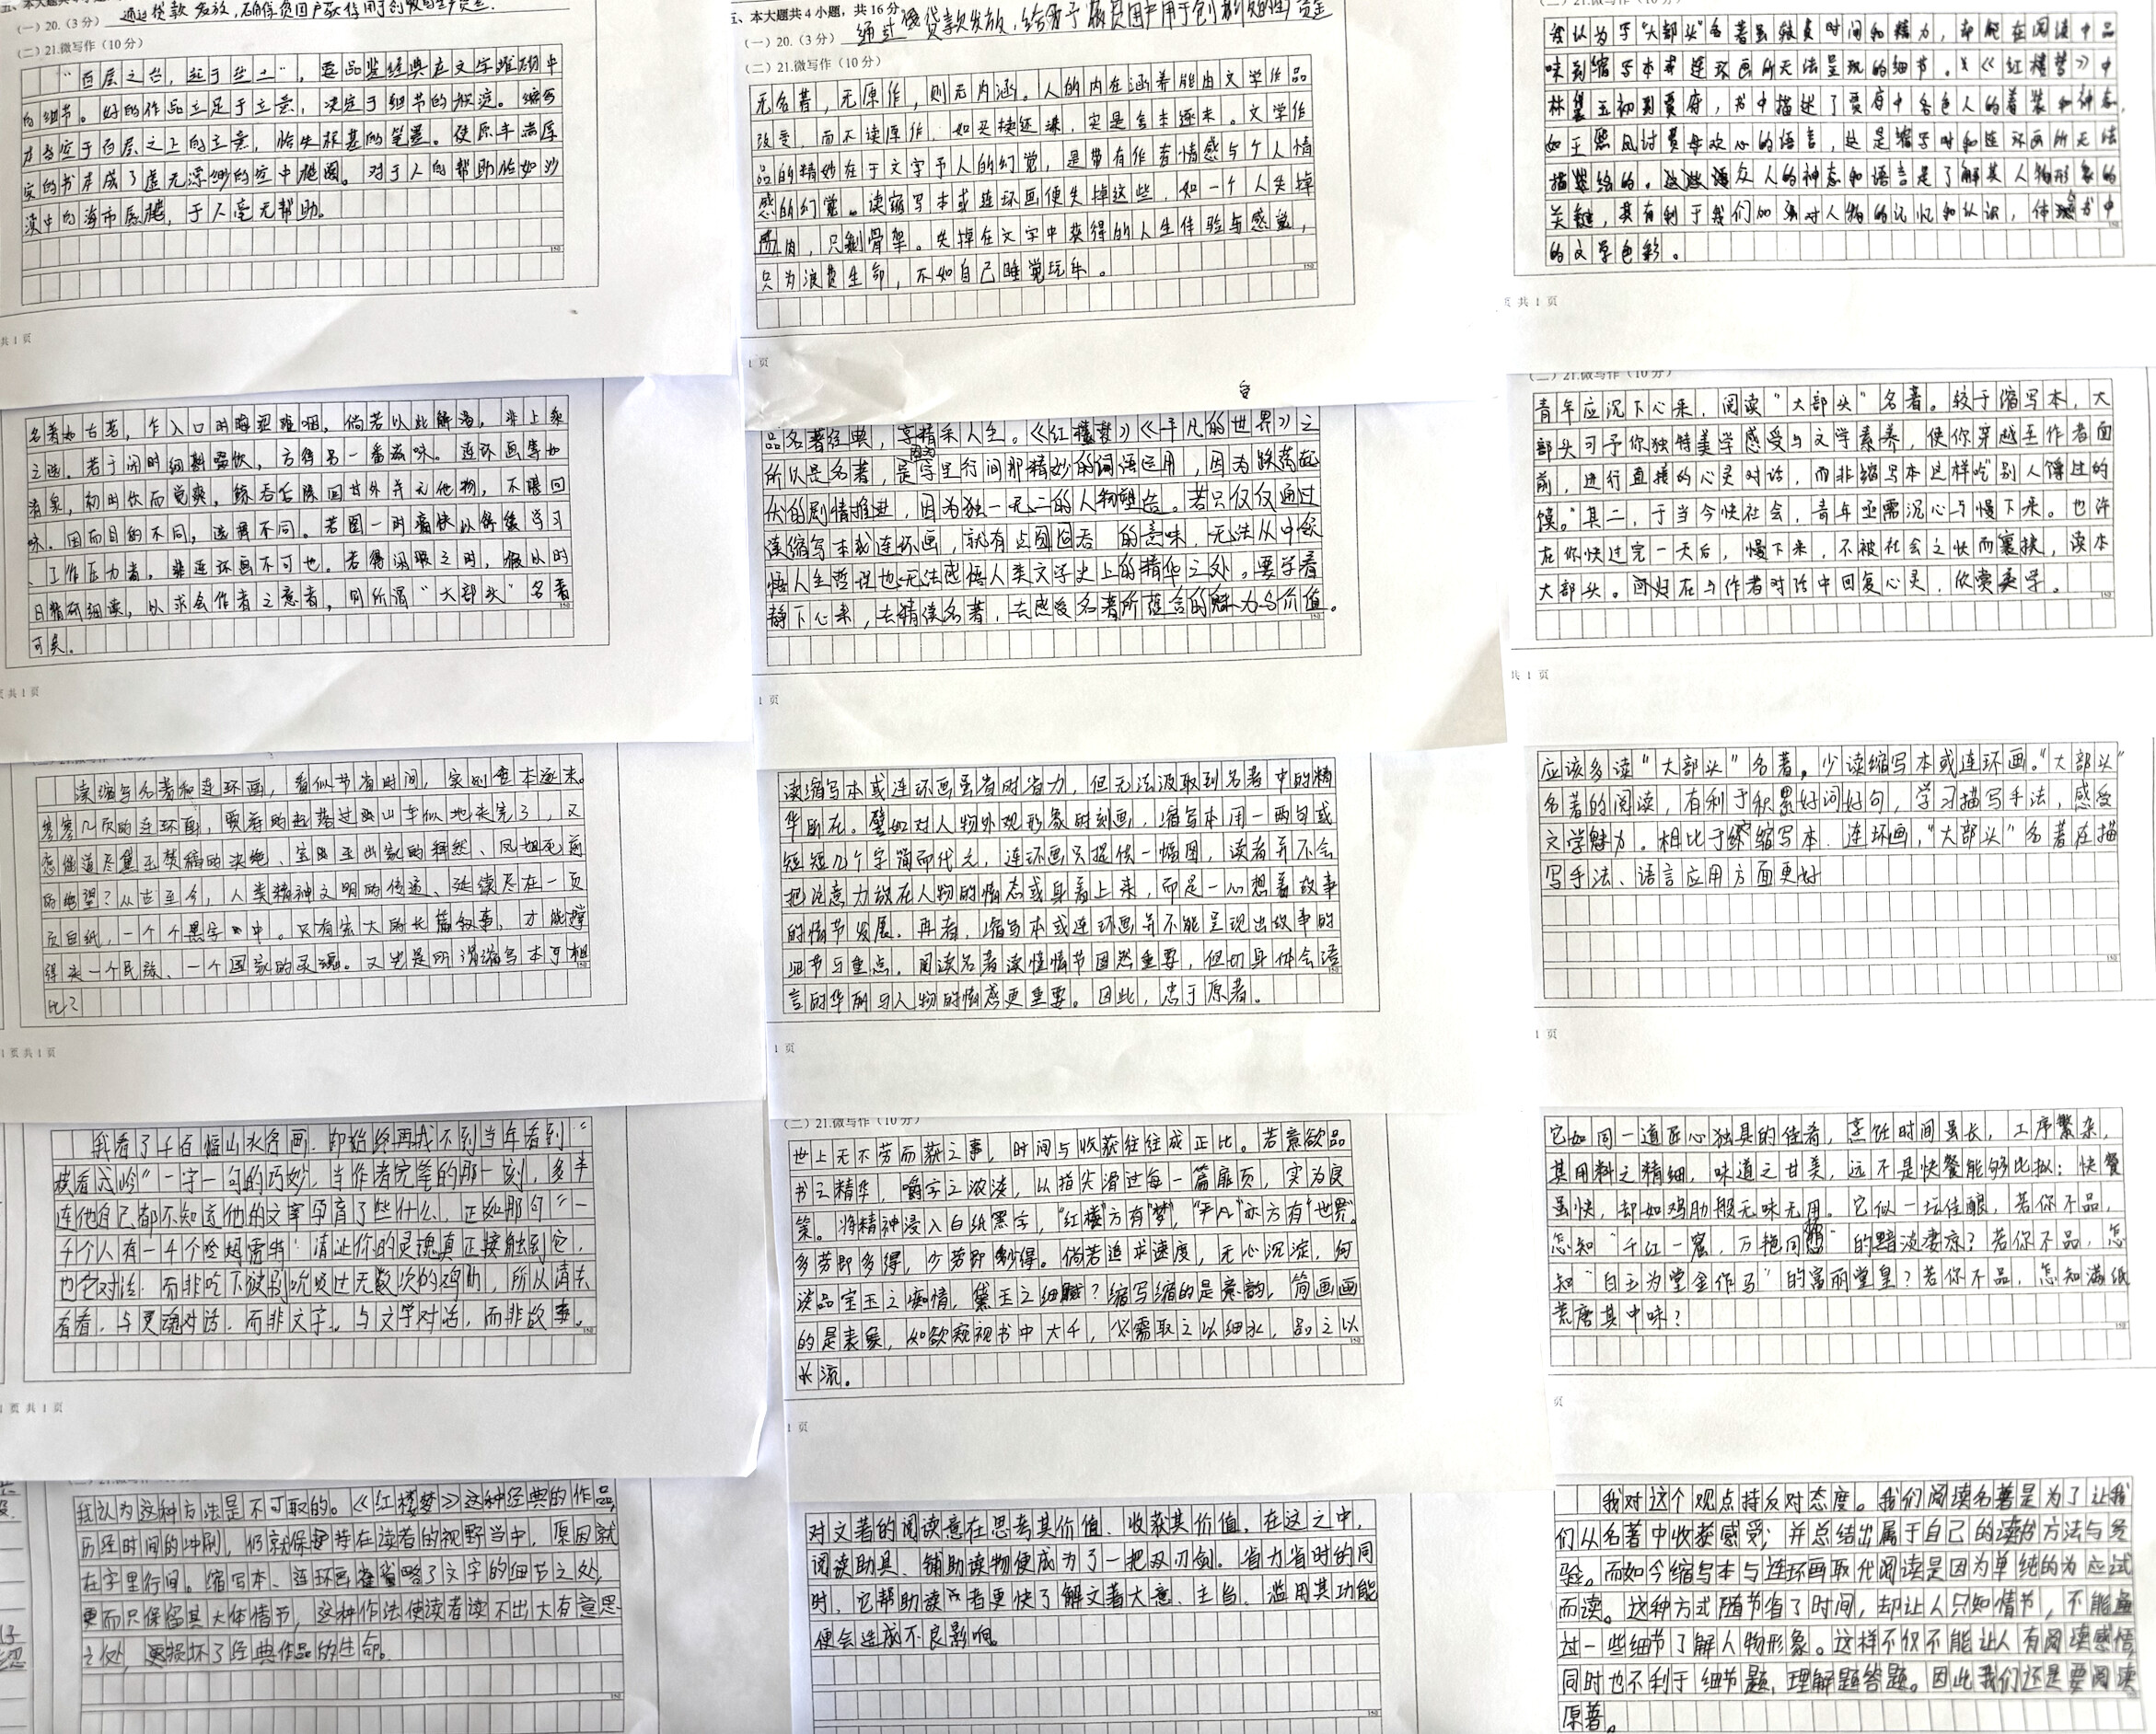 五、本大题共4小题
(一)20.(3分) 通过贷款发放,确保贫困户获得用于创收的生产资金.
(二)21.微写作(10分)
“百层之台,起于垒土”,要品鉴经典在文字堆砌中
的细节。好的作品立足于立意,决定于细节的沉淀。缩写
本当位于百层之上的立意,恰失根基的笔墨。使原丰满厚
实的书本成了虚无漂缈的空中楼阁。对于人的帮助恰如沙
漠中的海市蜃楼,于人毫无帮助。
150
共 1 页
名著如古茗,乍入口时晦涩难咽,倘若以此解渴,非上乘
之选。若于闲时细斟慢饮,方得另一番滋味。连环画等如
清泉,初时饮而觉爽,鲸吞后除回甘外并无他物,不堪回
味。因而目的不同,选择不同。若图一时痛快以舒缓学习
、工作压力者,非连环画不可也。若得闲暇之时,假以时
日精研细读,以求会作者之意者,则所谓“大部头”名著
可矣。
150
页 共 1 页
读缩写名著和连环画,看似节省时间,实则舍本逐末。
寥寥几页的连环画,贾府的起落过山车似地夹完了,又
怎能道尽黛玉焚稿的决绝、宝玉出家的释然、凤姐死前
的绝望?从古至今,人类精神文明的传递、延续尽在一页
页白纸,一个个黑字中。只有宏大的长篇叙事,才能撑
得起一个民族、一个国家的灵魂。又岂是所谓缩写本可相
比?
150
1 页 共 1 页
我看了千百幅山水名画,却始终再找不到当年看到“
横看成岭”一字一句的巧妙,当作者完笔的那一刻,多半
连他自己都不知道他的文章孕育了些什么,正如那句“一
千个人有一千个哈姆雷特”请让你的灵魂真正接触到它,
也它对话,而非吃下被别吮吸过无数次的鸡肋,所以请去
看看,与灵魂对话,而非文字。与文学对话,而非故事。
150
1 页 共 1 页
我认为这种方法是不可取的。《红楼梦》这种经典的作品,
历经时间的冲刷,仍就保持在读者的视野当中,原因就
在字里行间。缩写本、连环画省略了文字的细节之处,
更而只保留其大体情节,这种作法使读者读不出大有意思
之处,更损坏了经典作品的生命。
150
五、本大题共 4 小题,共 16 分。
(一)20.(3分) 通过贷款发放,给予贫困户用于创收的生产资金
(二)21.微写作(10分)
无名著,无原作,则无内涵。人的内在涵养能由文学作品
改变,而不读原作,如买椟还珠,实是舍本逐末。文学作
品的精妙在于文字予人的幻觉,是带有作者情感与个人情
感的幻觉。读缩写本或连环画便失掉这些,如一个人失掉
肉,只剩骨架。失掉在文字中获得的人生体验与感觉,
只为浪费生命,不如自己睡觉玩乐。
150
1 页
品名著经典,享精采人生。《红楼梦》《平凡的世界》之
所以是名著,是因为字里行间那精妙的词语运用,因为跌荡起
伏的剧情推进,因为独一无二的人物塑造。若只仅仅通过
读缩写本或连环画,就有点囫囵吞 的意味,无法从中领
悟人生哲理也无法感悟人类文学史上的精华之处。要学着
静下心来,去精读名著,去感受名著所蕴含的魅力与价值。
150
1 页
读缩写本或连环画虽省时省力,但无法汲取到名著中的精
华所在。譬如对人物外观形象的刻画,缩写本用一两句或
短短几个字简而代之,连环画只提供一幅图,读者并不会
把注意力放在人物的情态或身着上来,而是一心想着故事
的情节发展。再者,缩写本或连环画并不能呈现出故事的
细节与重点。阅读名著读懂情节固然重要,但切身体会语
言的华丽与人物的情感更重要。因此,忠于原著。
150
1 页
(二)21.微写作(10分)
世上无不劳而获之事,时间与收获往往成正比。若意欲品
书之精华,嚼字之浓淡,以指尖滑过每一篇扉页,实为良
策。将精神浸入白纸黑字,“红楼”方有“梦”,“平凡”亦方有“世界”。
多劳即多得,少劳即少得。倘若追求速度,无心沉淀,何
谈品宝玉之痴情,黛玉之细腻?缩写缩的是意韵,简画画
的是表象,如欲窥视书中大千,必需取之以细水,品之以
长流。
150
1 页
对文著的阅读意在思考其价值、收获其价值,在这之中,
阅读助具、辅助读物便成为了一把双刃剑。省力省时的同
时,它帮助读者更快了解文著大意、主旨,滥用其功能
便会造成不良影响。
150
(二)21.微写作(10分)
我认为于“大部头”名著虽颇费时间和精力,却能在阅读中品
味到缩写本或连环画所无法呈现的细节。《红楼梦》中
林黛玉初到贾府,书中描述了贾府中各色人的着装和神态,
如王熙凤讨贾母欢心的语言,这是缩写时和连环画所无法
描绘的。众人的神态和语言是了解其人物形象的
关键,其有利于我们加强对人物的记忆和认识,体会书中
的文学色彩。
150
页 共 1 页
(二)21.微写作(10分)
青年应沉下心来,阅读“大部头”名著。较于缩写本,大
部头可予你独特美学感受与文学素养,使你穿越至作者面
前,进行直接的心灵对话,而非缩写本这样吃“别人馋过的
馍。”其二,于当今快社会,青年亟需沉心与慢下来。也许
在你快过完一天后,慢下来,不被社会之快而裹挟,读本
大部头。可在与作者对话中回复心灵,欣赏美学。
150
共 1 页
应该多读“大部头”名著,少读缩写本或连环画。“大部头”
名著的阅读,有利于积累好词好句,学习描写手法,感受
文学魅力。相比于缩写本、连环画,“大部头”名著在描
写手法、语言应用方面更好
150
1 页
它如同一道匠心独具的佳肴,烹饪时间虽长,工序繁杂,
其用料之精细,味道之甘美,远不是快餐能够比拟:快餐
虽快,却如鸡肋般无味无用。它似一坛佳酿,若你不品,
怎知“千红一窟,万艳同悲”的黯淡凄凉?若你不品,怎
知“白玉为堂金作马”的富丽堂皇?若你不品,怎知满纸
荒唐其中味?
150
页
我对这个观点持反对态度。我们阅读名著是为了让我
们从名著中收获感受,并总结出属于自己的读书方法与经
验。而如今缩写本与连环画取代阅读是因为单纯的为应试
而读。这种方式随节省了时间,却让人只知情节,不能通
过一些细节了解人物形象。这样不仅不能让人有阅读感悟,
同时也不利于细节题,理解题答题。因此我们还是要阅读
原著。